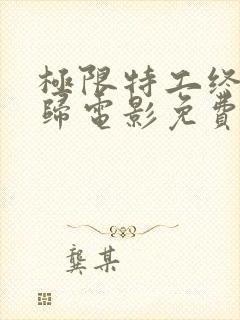 極限特工终
歸電影免費
龔某